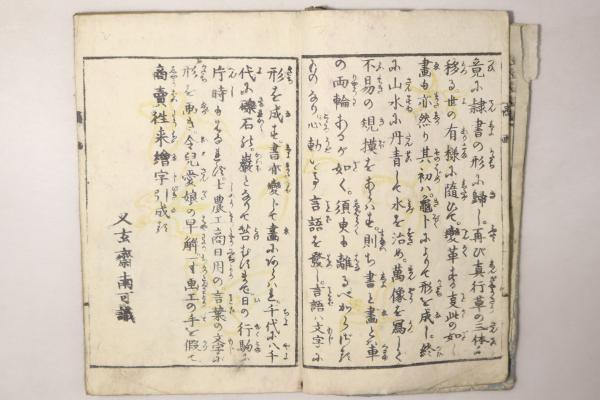 竟に隷書の形に歸し再び真行草の三体に
移る世の有様に隨ひて變革する支此の如し
畫も亦然り其初ハ龜卜によりて形を成し終
に山水に丹青して水を治め萬像を寫して
不易の規摸をあらハす則ち書と畫とハ車
の両輪あるが如く須臾も離るべからざる
ものなり心動いする言語を發し言語ハ文字に
形を成す書亦變して畫にあらハれ千代に八千
代に礫石の巖となりて苔むすまで日の行駒の
片時も士農工商日用の言葉の文字に
形を画き令兒愛娘の早解一寸画工の手を假て
商賣往来繪字引成る
又玄齋南可識